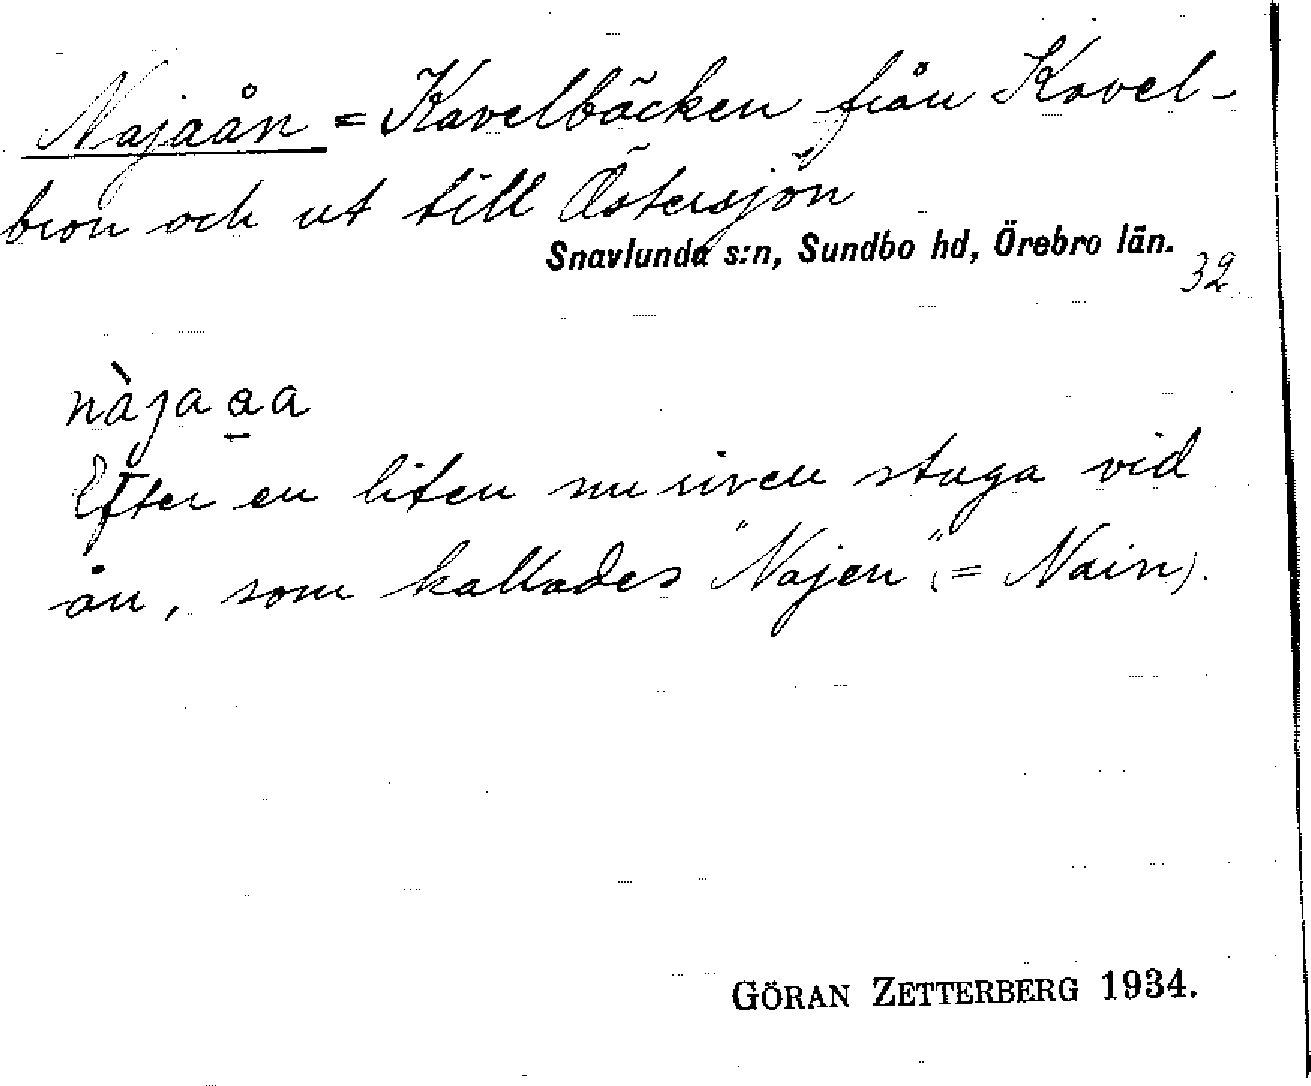 Najaån = Kavelbäcken från Kavel-
bron och ut till Östersjön
Snavlunda s:n, Sundbo hd, Örebro län.
32
nàjaa̲a
Efter en liten nu riven stuga vid
ån, som kallades "Najen" (= Nain).
GÖRAN ZETTERBERG 1934.